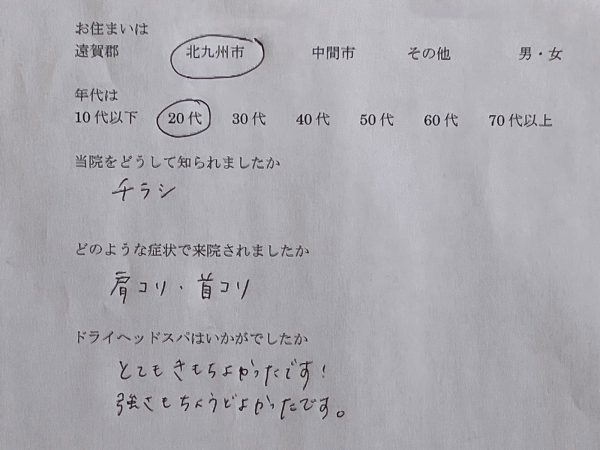 お住まいは
遠賀郡 北九州市 中間市 その他 男・女
年代は
10代以下 20代 30代 40代 50代 60代 70代以上
当院をどうして知られましたか
チラシ
どのような症状で来院されましたか
肩コリ・首コリ
ドライヘッドスパはいかがでしたか
とてもきもちよかったです!
強さもちょうどよかったです。